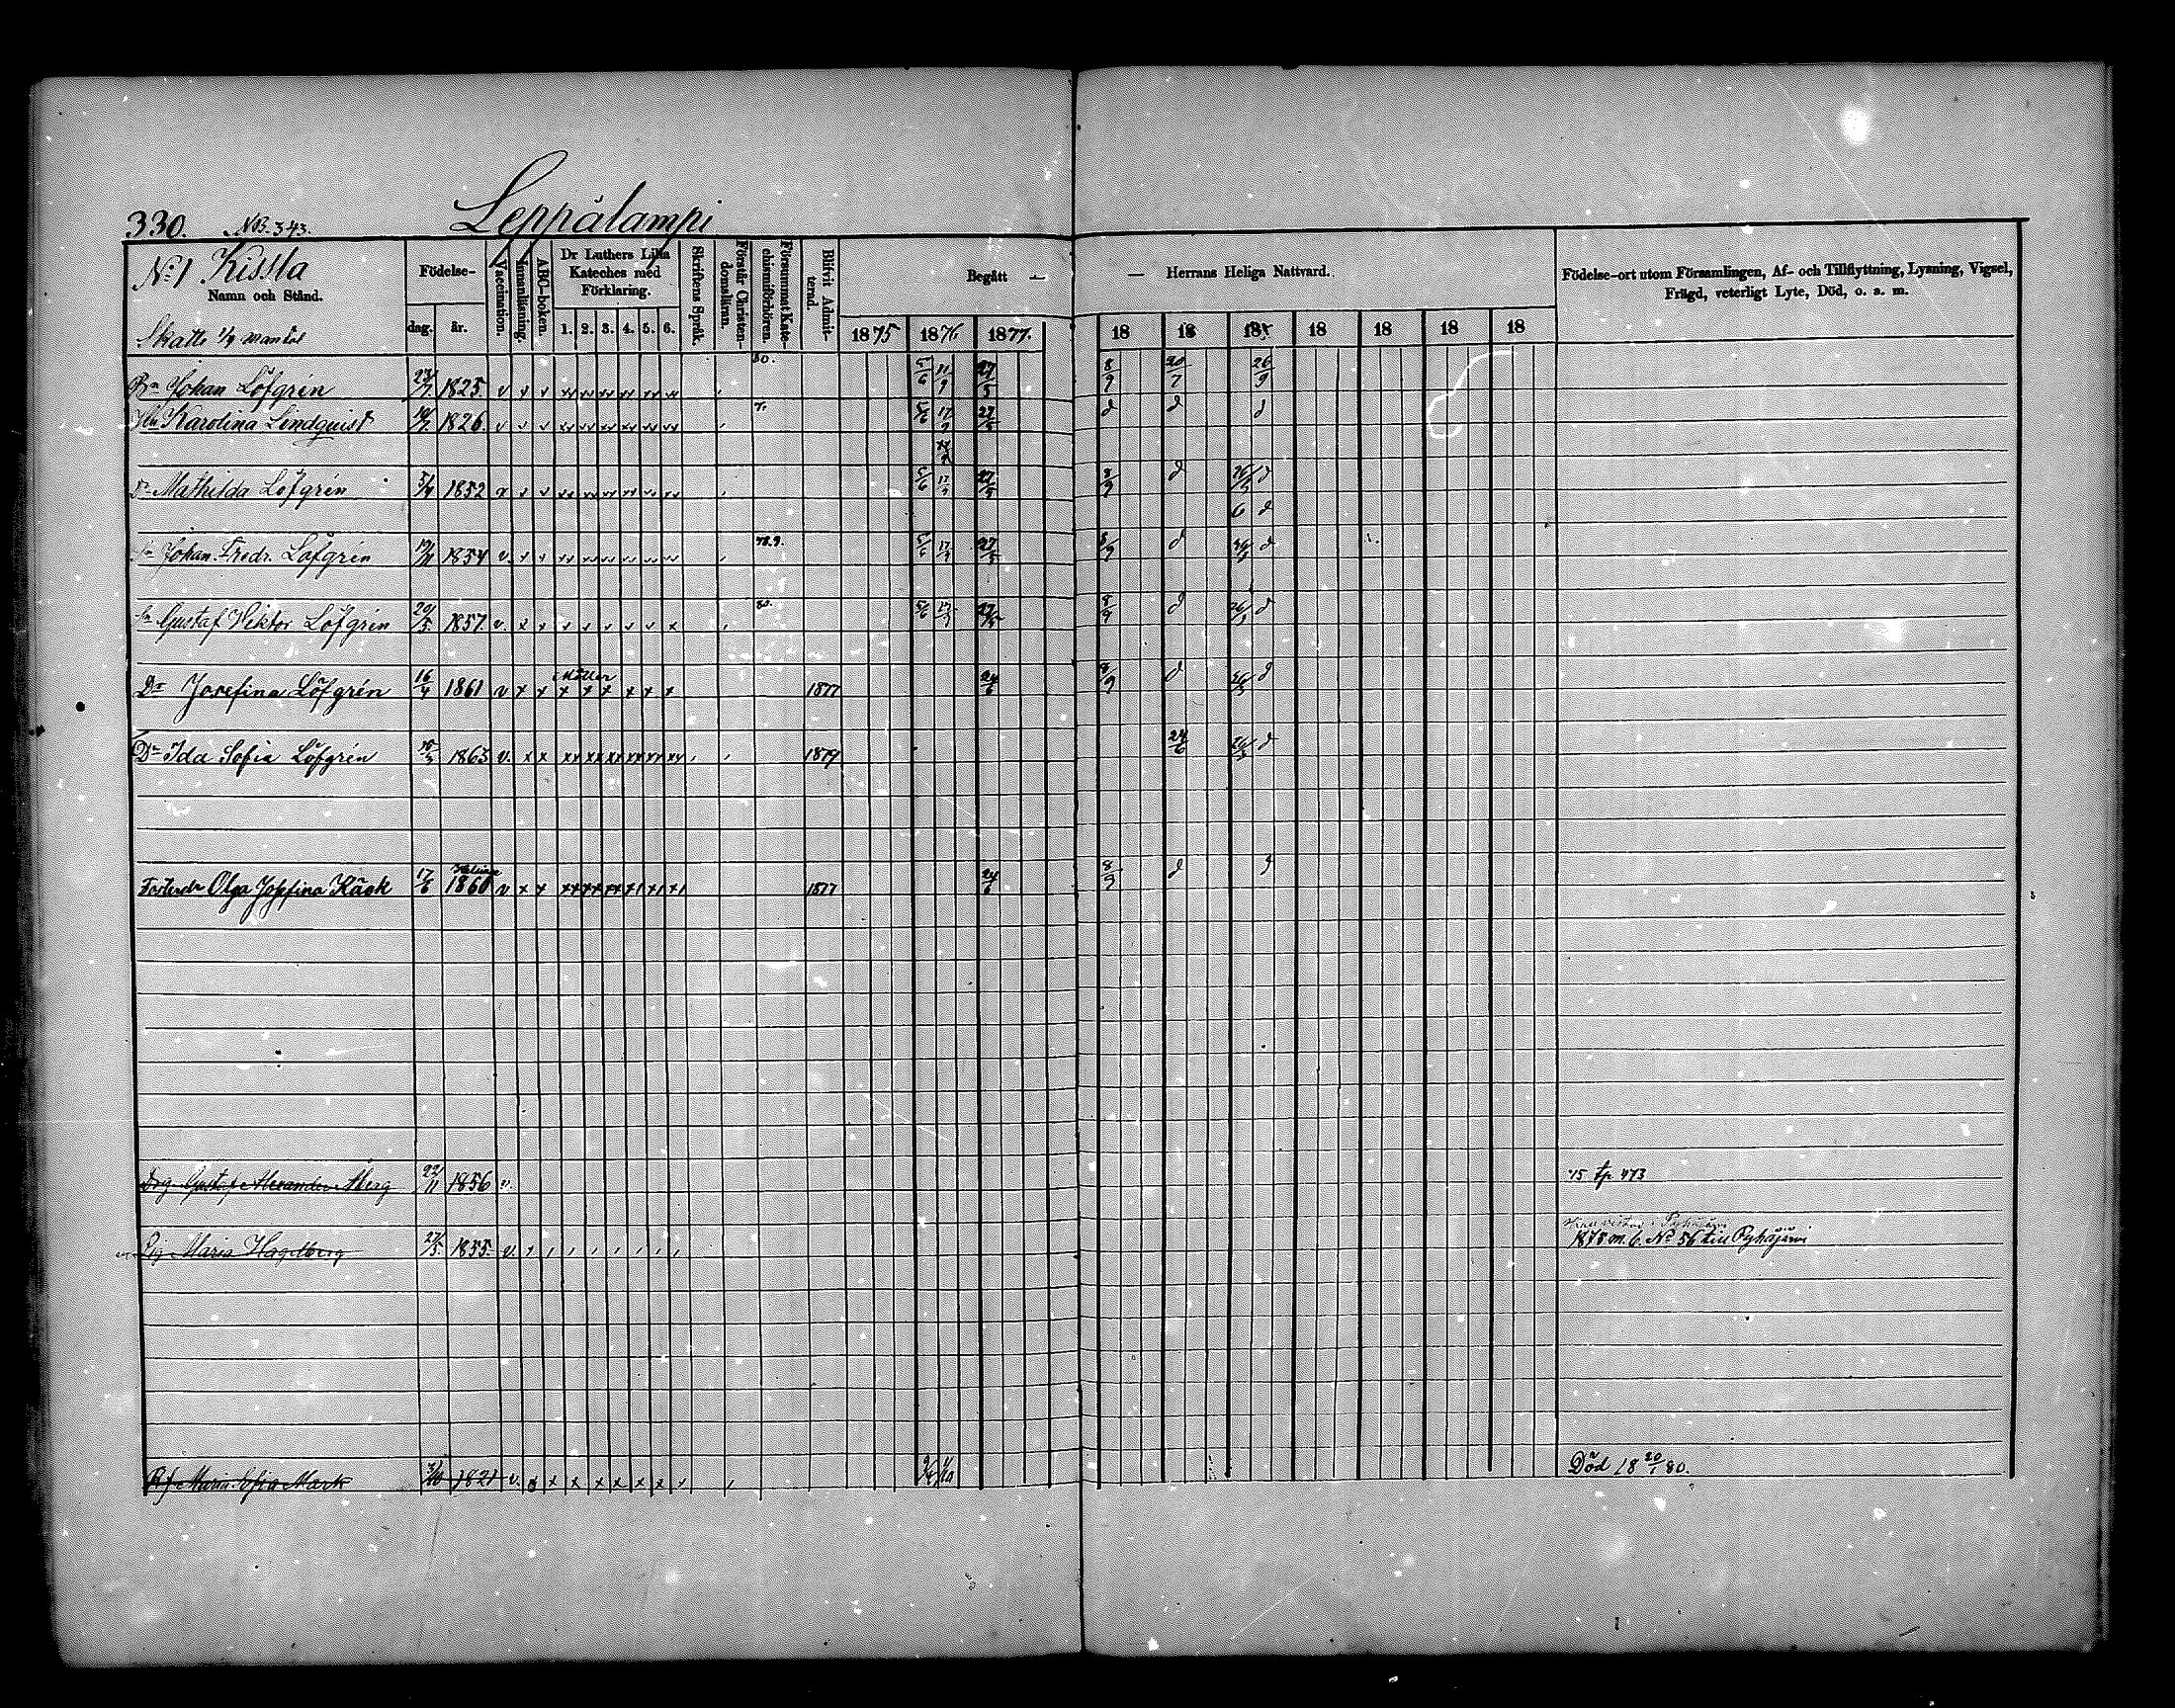 Leppälampi
330. No 3. 343.
No 1 Kissla
Namn och Stånd.
Skatte 1/4 mantal
Födelse-
dag. år.
Vaccination.
Innanläsning.
ABC-boken.
Dr Luthers Lilla Kateches med Förklaring.
1. 2. 3. 4. 5. 6.
Skriftens Språk.
Förstår Christendomsläran.
Försummat Katechismiförhören.
Blifvit Admitterad.
Begått — — Herrans Heliga Nattvard.
1875 1876 1877. 18 18 18 18 18 18 18
Födelse-ort utom Församlingen, Af- och Tillflyttning, Lysning, Vigsel,
Frägd, veterligt Lyte, Död, o. s. m.
Bn Johan Löfgrén 1825. v 80. 5/6 27/5 8/9 20/7 26/9
Hu Karolina Lindquist 1826. v 5/6 17/9 27/5
Dr Mathilda Löfgrén 1852 v 5/6 17/9 27/5 8/9
Sn Johan Fredr. Löfgrén 1854 v. 78.9. 5/6 17/9 27/5 8/9
Sn Gustaf Viktor Löfgrén 20/5 1857 v. 80. 5/6 17/9 27/5 8/9
Dr Josefina Löfgrén 16/4 1861 v 1877 24/6 8/9
Dr Ida Sofia Löfgrén 1863 v. 1879 24/6
Fosterdr Olga Josefina Kääk 17/6 1860 v 1877 24/6 8/9
Drg. Gustaf Alexander Åberg 22/11 1856 v. 75 fp 473
Pig Maria Hagelberg 27/5 1855. v. 1875 m. 6. No 56 till Pyhäjärvi
Maria Sofia Mark 1821 v. Död 18 20/1 80.